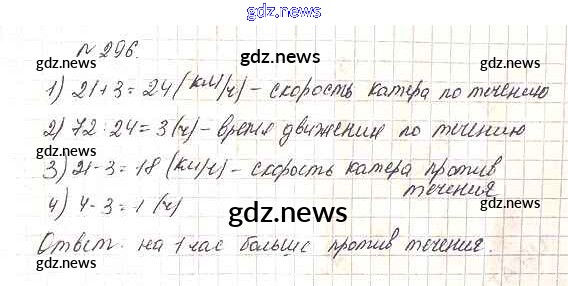 gdz.news
№ 296. gdz.news
gdz.news
1) 21+3=24 (км/ч) – скорость катера по течению
gdz.news
2) 72:24=3 (ч) – время движения по течению
gdz.news
3) 21-3=18 (км/ч) – скорость катера против
gdz.news течения
4) 4-3=1 (ч)
gdz.news
Ответ. на 1 час больше против течения.
gdz.news gdz.news